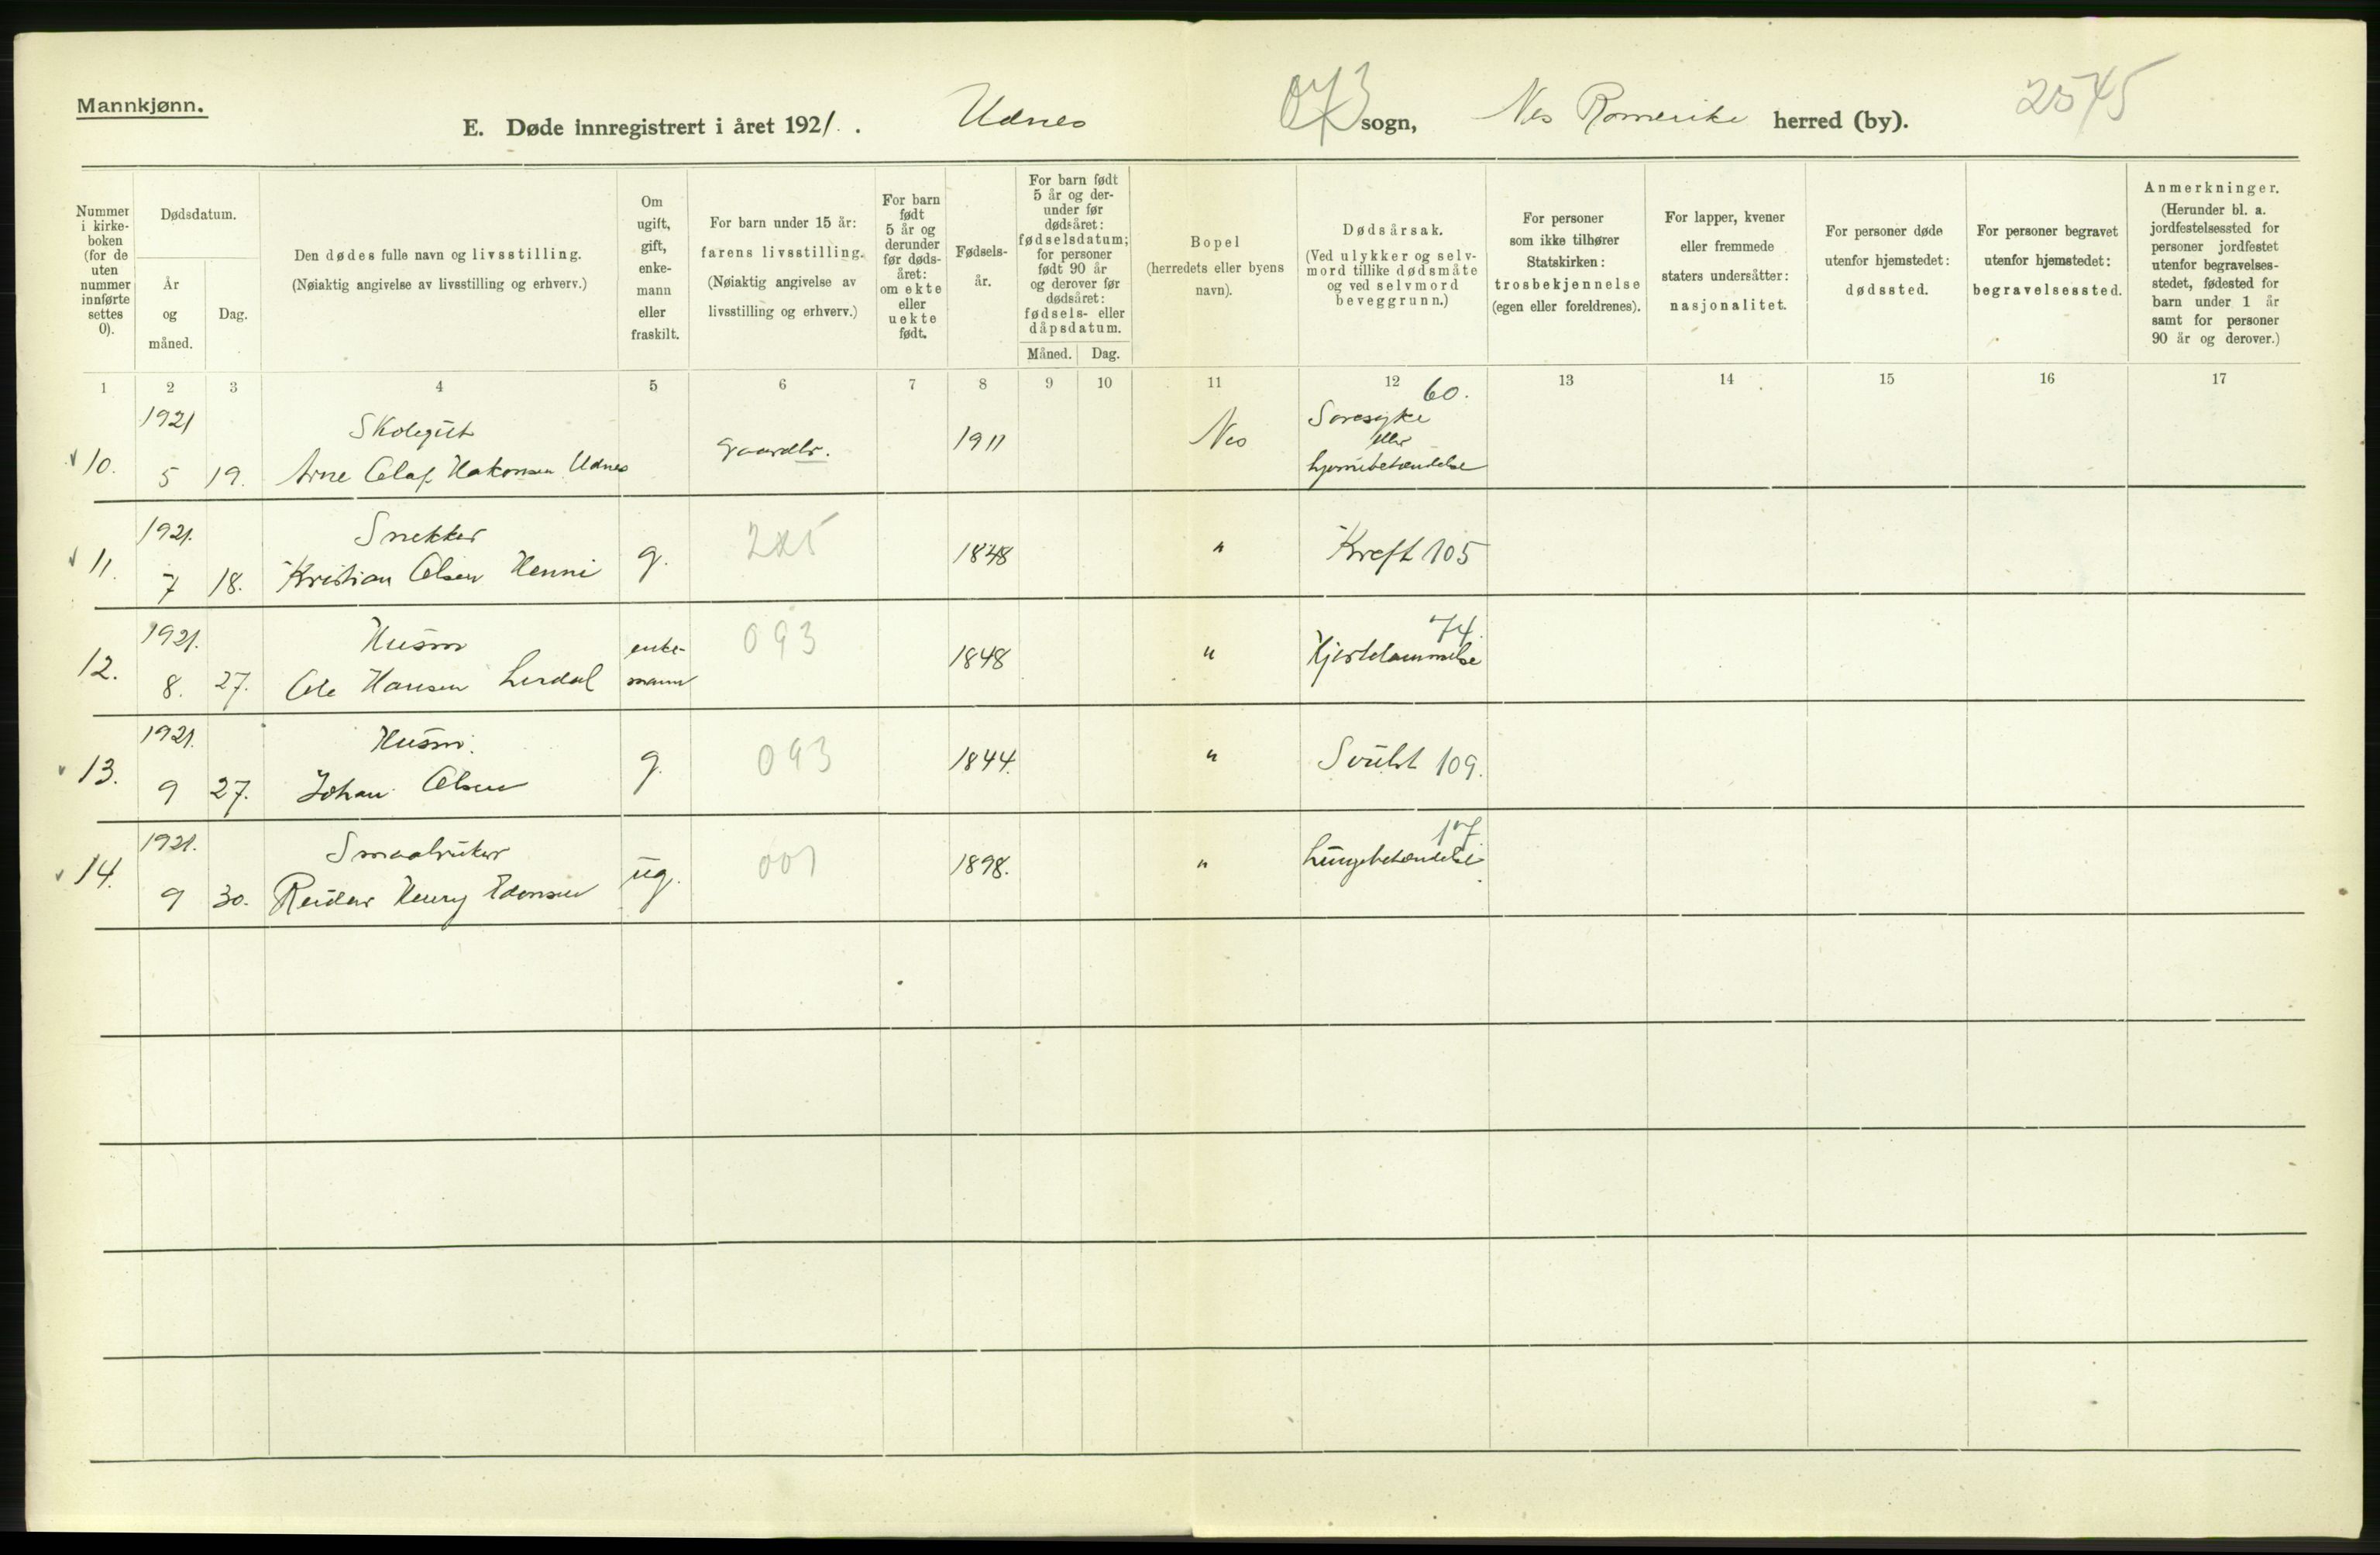 Mannkjønn.
E. Døde innregistrert i året 1921. Udnes 073 sogn, Nes Romerike herred (by). 2545
Nummer i kirke-boken (for de uten nummer innførte settes 0).
Dødsdatum.
År og måned.
Dag.
Den dødes fulle navn og livsstilling.
(Nøiaktig angivelse av livsstilling og erhverv.)
Om ugift, gift, enke-mann eller fraskilt.
For barn under 15 år:
farens livsstilling.
(Nøiaktig angivelse av livsstilling og erhverv.)
For barn født 5 år og derunder før døds-året: om ekte eller uekte født.
Fødsels-år.
For barn født 5 år og der-under før dødsåret: fødselsdatum; for personer født 90 år og derover før dødsåret: fødsels- eller dåpsdatum.
Måned. Dag.
Bopel
(herredets eller byens navn).
Dødsårsak.
(Ved ulykker og selv-mord tillike dødsmåte og ved selvmord beveggrunn.)
For personer som ikke tilhører Statskirken:
trosbekjennelse
(egen eller foreldrenes).
For lapper, kvener eller fremmede staters undersåtter:
nasjonalitet.
For personer døde utenfor hjemstedet:
dødssted.
For personer begravet utenfor hjemstedet:
begravelsessted.
Anmerkninger.
(Herunder bl. a. jordfestelsessted for personer jordfestet utenfor begravelses-stedet, fødested for barn under 1 år samt for personer 90 år og derover.)
1 2 3 4 5 6 7 8 9 10 11 12 13 14 15 16 17
1921 Skolegut 60.
10. 5 19. Arne Olaf Hakonsen Udnes Gaardbr. 1911 Nes Sovesyke
eller
hjernebetændelse
1921. Snekker
11. 7 18. Kristian Olsen Henni g. 1848 " Kreft 105
1921. Husm enke- 093 74.
12. 8. 27. Ole Hansen Lerdal mann 1848 " Hjertelammelse
1921. Husm.
13. 9 27. Johan Olsen g. 093 1844. " Svulst 109.
1921. Smaabruker 17
14. 9 30. Reidar Henry Edonsen ug. 001 1898. " Lungebetændelse